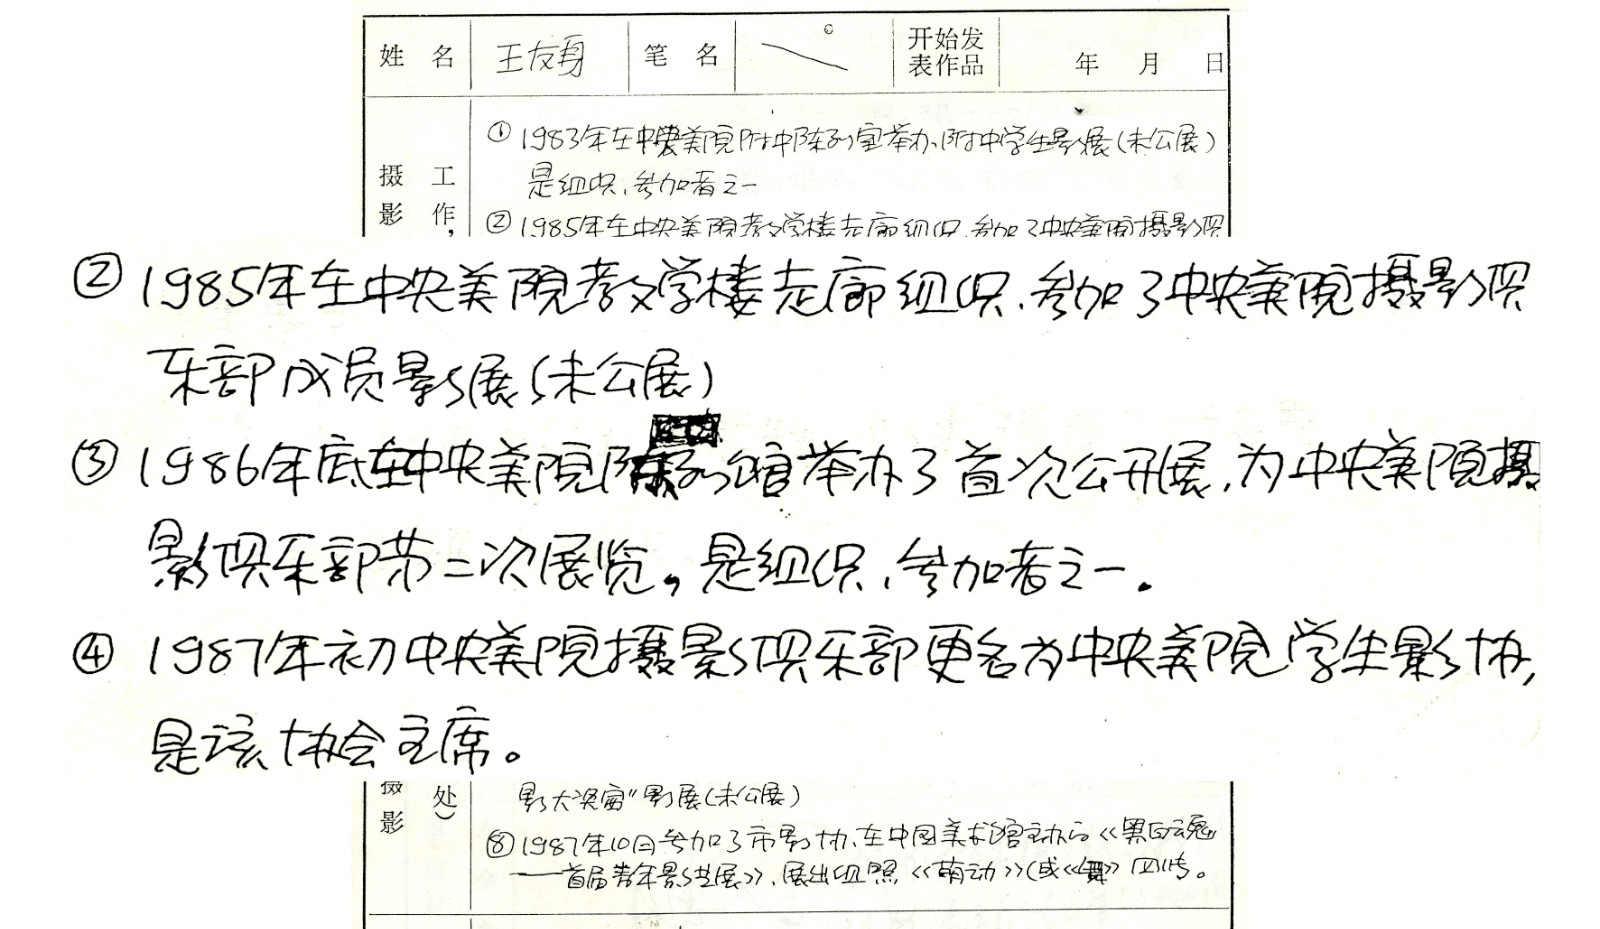 姓 名 王友身 笔 名 开始发表作品 年 月 日
①1983年在中央美院附中陈列室举办附中学生影展(未公展)
摄影 工作, 是组织、参加者之一
②1985年在中央美院教学楼走廊组织、参加了中央美院摄影俱
②1985年在中央美院教学楼走廊组织、参加了中央美院摄影俱
乐部成员影展(未公展)
③1986年底在中央美院陈列馆举办了首次公开展,为中央美院摄
影俱乐部第二次展览。是组织、参加者之一。
④1987年初中央美院摄影俱乐部更名为中央美院学生影协,
是该协会主席。
摄影 处) 影大奖赛"影展(未公展)
⑧1987年10月参加了市影协、在中国美术馆主办的《黑白魂
——首届青年影艺展》,展出组照《萌动》(或《舞》四件。